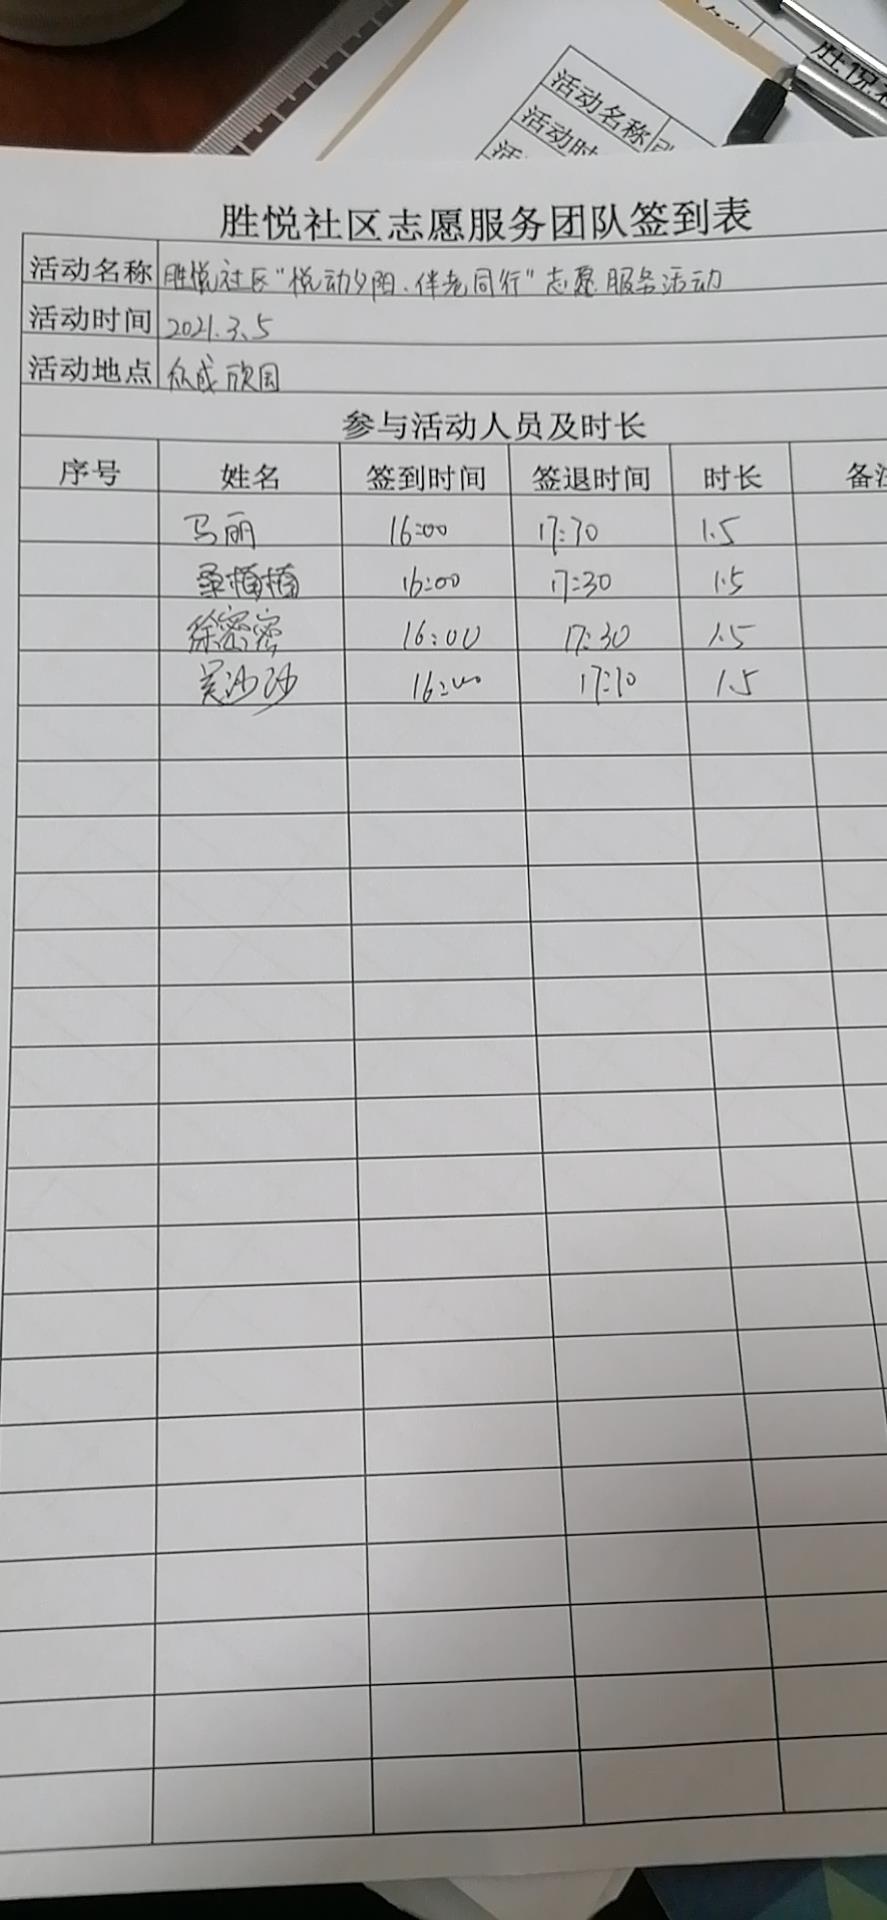 活动名称
活动时
活
胜悦社
胜悦社区志愿服务团队签到表
活动名称 胜悦社区“悦动夕阳、伴老同行”志愿服务活动
活动时间 2021.3.5
活动地点 众成欣园
参与活动人员及时长
序号 姓名 签到时间 签退时间 时长 备注
马丽 16:00 17:30 1.5
桑楠楠 16:00 17:30 1.5
徐密密 16:00 17:30 1.5
吴沙沙 16:00 17:30 1.5